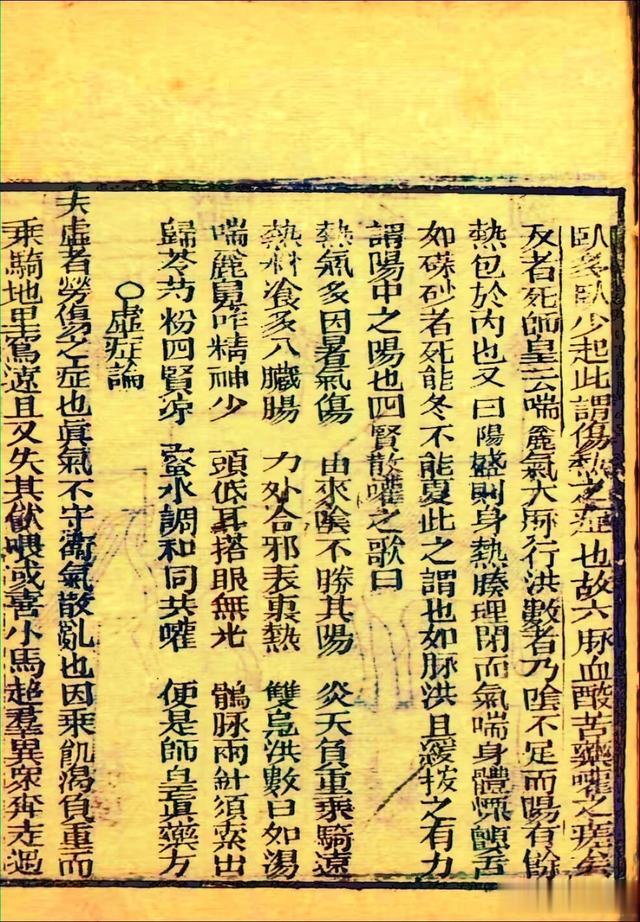 臥多臥少起此謂傷熱之症也故六脉血酸苦藥嚾之痊矣
反者死師皇云喘麄氣大脉行洪數者乃陰不足而陽有餘
熱包於內也又曰陽盛則身熱腠理閉而氣喘身體慄顫舌
如磲砂者死能冬不能夏此之謂也如脉洪且緩拔之有力
謂陽中之陽也四賢散嚾之歌曰
熱氣多因暑氣傷 由來陰不勝其陽 炎天負重乘騎遠
熱料飡多八臟腸 力外合邪表裏熱 雙鳧洪數口如湯
喘麄舅咋精神少 頭低耳搭眼無光 鶻脉兩針須索出
歸芩芍粉四賢凉 蜜水調和同共嚾 便是師皇眞藥方
○虛症論
夫虛者勞傷之症也眞氣不守衛氣散亂也因乘飢渴負重而
乘騎地里寫遠且又失其飲喂或喜小馬超羣異衆奔走過